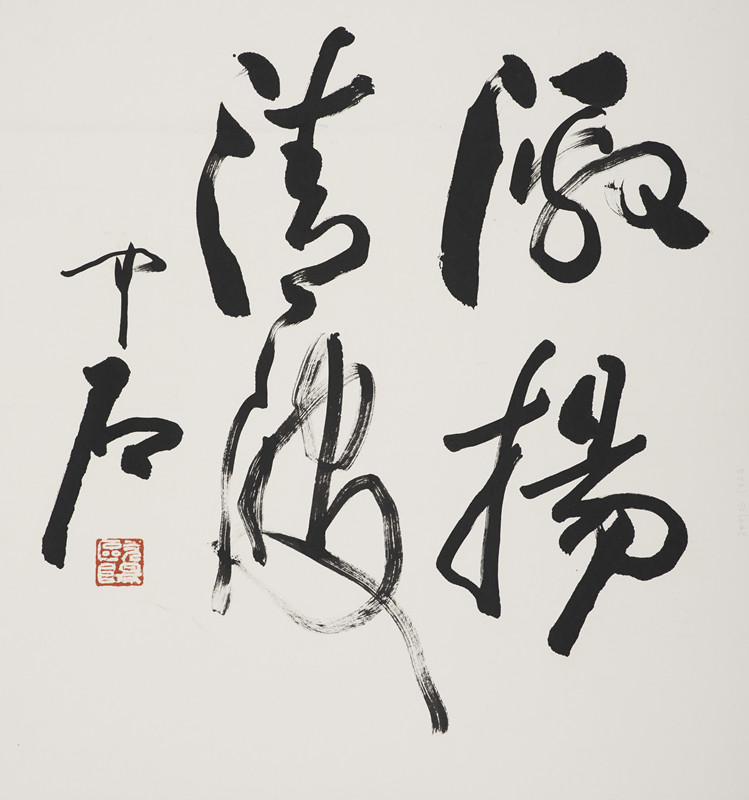 激揚
清波
中石